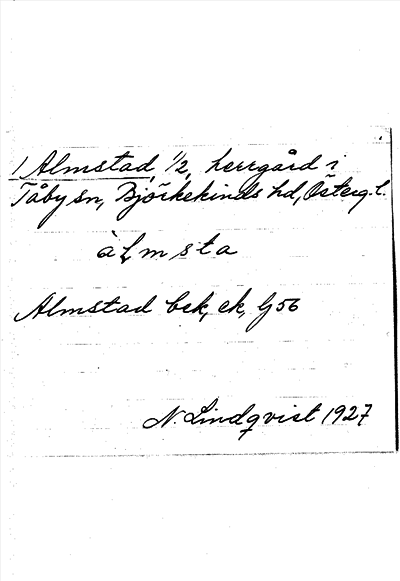 1 Almstad, 1/2, herrgård i
Tåby sn, Björkekinds hd, Österg. l.
àlmsta
Almstad bek, ek, G 56
N. Lindqvist 1927